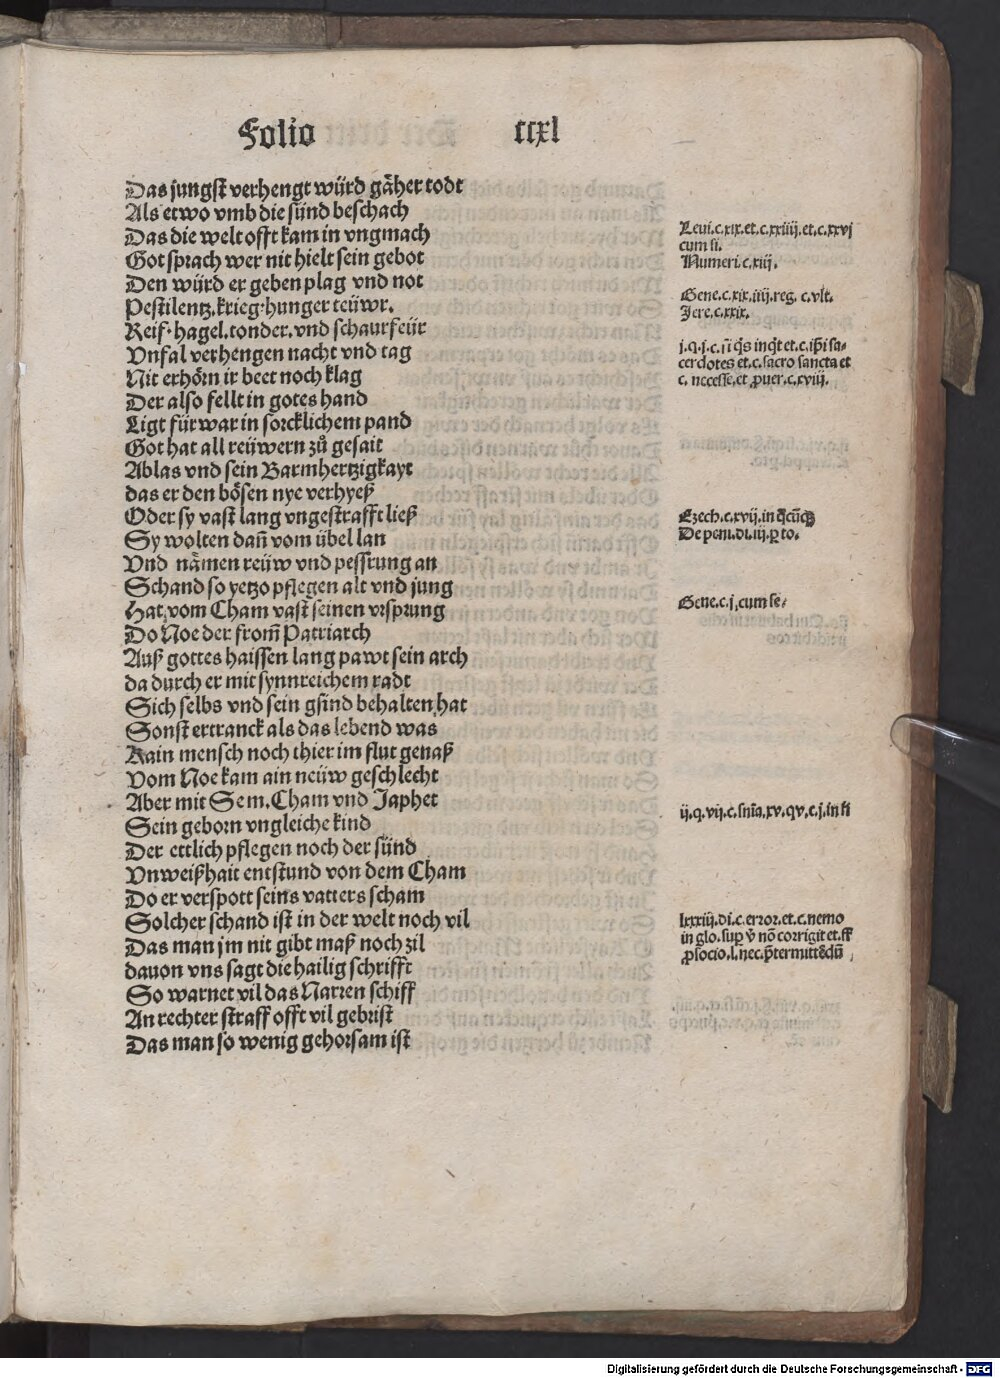 Folio ccxl
Das jungst verhengt würd gäher todt
Als etwo vmb die sünd beschach
Das die welt offt kam in vngmach
Got sprach wer nit hielt sein gebot
Den würd er geben plag vnd not
Pestilentz.krieg.hunger teüwr.
Reif.hagel.tonder.vnd schaurfeür
Vnfal verhengen nacht vnd tag
Nit erhörn ir beet noch klag
Der also fellt in gotes hand
Ligt fürwar in sorcklichem pand
Got hat all reüwern zů gesait
Ablas vnd sein Barmhertzigkayt
das er den bösen nye verhyeß
Oder sy vast lang vngestrafft ließ
Sy wolten dañ vom übel lan
Vnd nämen reüw vnd pessrung an
Schand so yetzo pflegen alt vnd jung
Hat vom Cham vast seinen vrsprung
Do Noe der from̃ Patriarch
Auß gottes haissen lang pawt sein arch
da durch er mit synnreichem radt
Sich selbs vnd sein gsind behalten hat
Sonst ertranck als das lebend was
Kain mensch noch thier im flut genaß
Vom Noe kam ain neüw geschlecht
Aber mit Sem.Cham vnd Japhet
Sein geborn vngleiche kind
Der ettlich pflegen noch der sünd
Vnweißhait entstund von dem Cham
Do er verspott seins vatters scham
Solcher schand ist in der welt noch vil
Das man jm nit gibt maß noch zil
dauon vns sagt die hailig schrifft
So warnet vil das Narren schiff
An rechter straff offt vil gebrist
Das man so wenig gehorsam ist
Leui.c.xix.et.c.xxiiij.et.c.xxvj
cum si.
Numeri.c.xiij.
Gene.c.xix.iiij.reg. c.vlt.
Jere.c.xxix.
j.q.j.c.si q̃s inq̃t et.c.ip̃i sa-
cerdotes et.c.sacro sancta et
c. necesse.et ꝓuer.c.xviij.
Ezech.c.xvij.in
De peni.di.iij.ꝑ to.
Gene.c.j.cum se.
ij.q.vij.c.sñia.xv.qv.c.j.in fi
lxxxiij.di.c.error.et.c.nemo
in glo.sup v̉ nõ corrigit et.ff
ꝓ socio.l.nec.p̃termittẽdũ
Digitalisierung gefördert durch die Deutsche Forschungsgemeinschaft - DFG